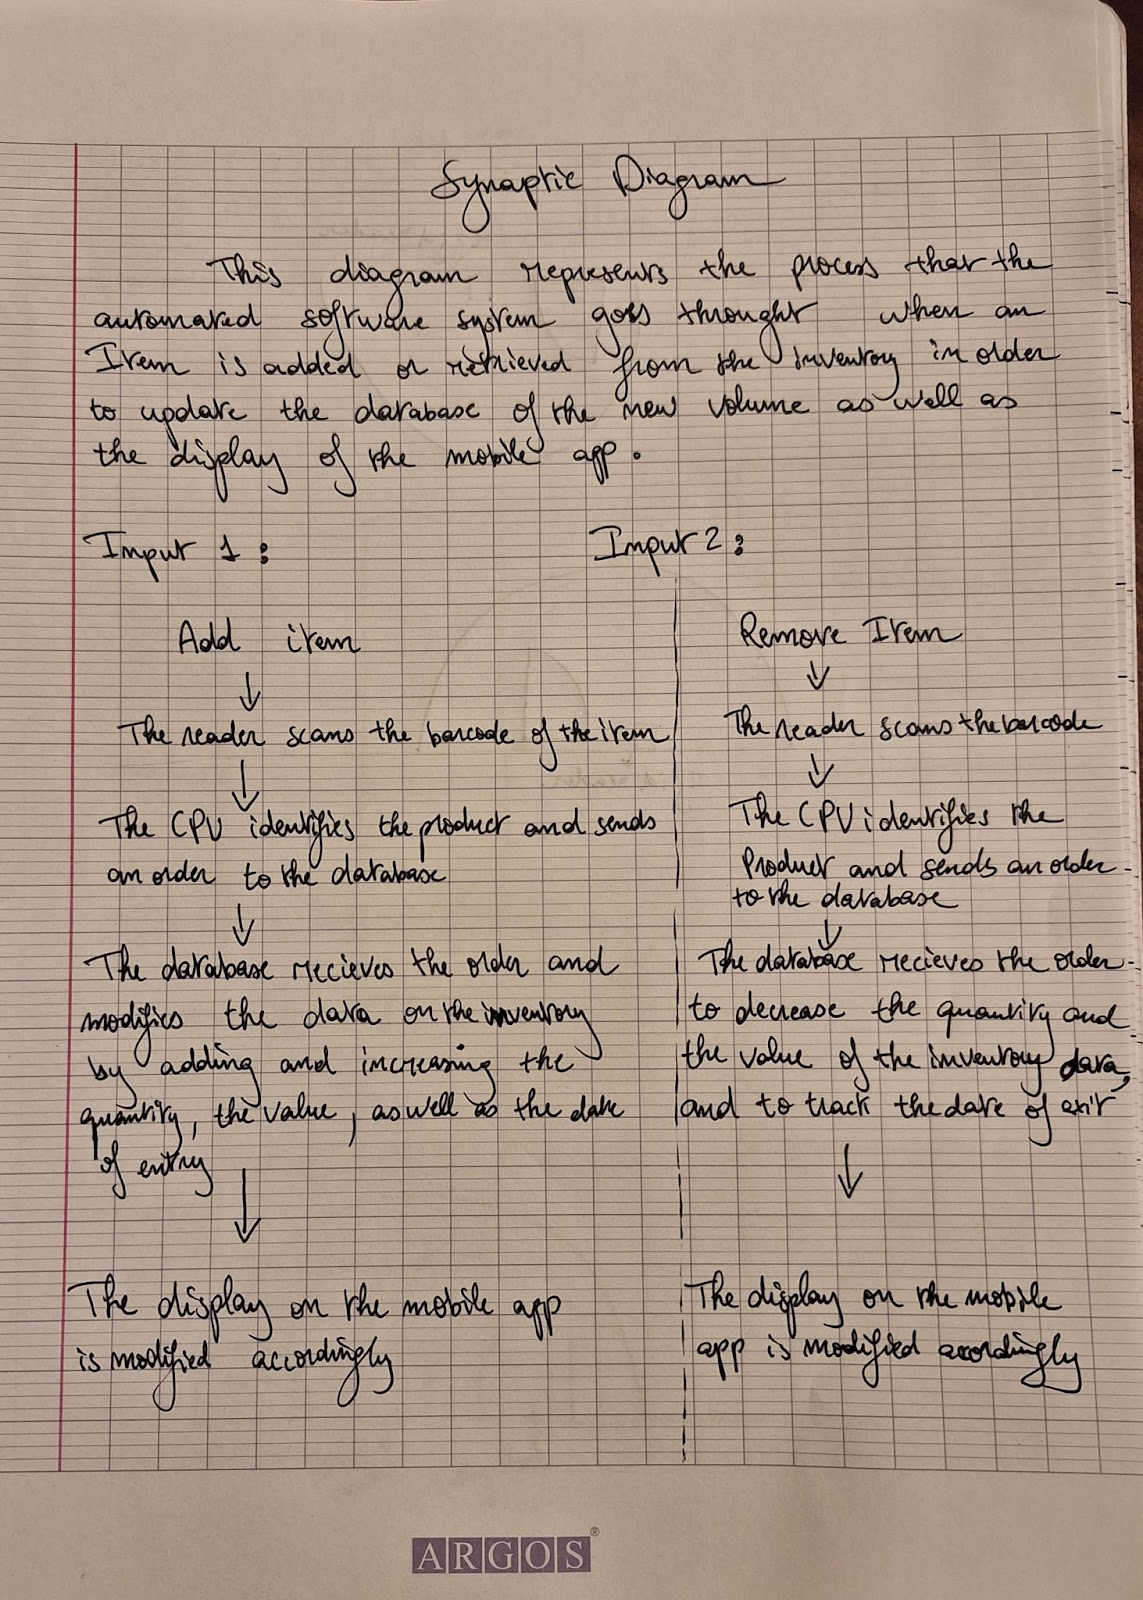 Synaptic Diagram
This diagram represents the process that the
automated software system goes throught when an
Item is added or retrieved from the inventory in order
to update the database of the new volume as well as
the display of the mobile app.
Input 1:
Add item
↓
The reader scans the barcode of the item
↓
The CPU identifies the product and sends
an order to the database
↓
The database recieves the order and
modifies the data on the inventory
by adding and increasing the
quantity, the value, as well as the date
of entry
↓
The display on the mobile app
is modified accordingly
Input 2:
Remove Item
↓
The reader scans the barcode
↓
The CPU identifies the
Product and sends an order
to the database
↓
The database recieves the order
to decrease the quantity and
the value of the inventory data,
and to track the date of exit
↓
The display on the mobile
app is modified accordingly
ARGOS®